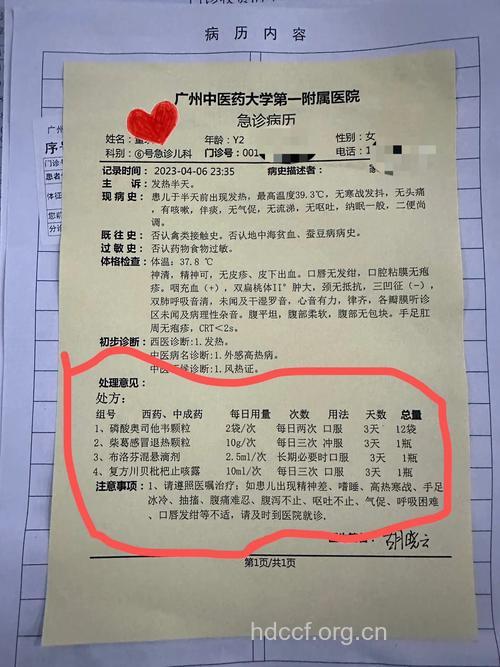 病 历 内 容
广州中医药大学第一附属医院
急诊病历
姓名: 年龄: Y2 性别: 女
科别: ⑥号急诊儿科 门诊号: 001 电话: 1
记录时间: 2023-04-06 23:35 病史描述者:
主 诉: 发热半天。
现 病 史: 患儿于半天前出现发热，最高温度39.3℃，无寒战发抖，无头痛
，有咳嗽，伴痰，无气促，无流涕，无呕吐，纳眠一般，二便尚
调。
既 往 史: 否认禽类接触史。否认地中海贫血、蚕豆病病史。
过 敏 史: 否认药物食物过敏。
体格检查: 体温: 37.8 ℃
神清，精神可，无皮疹、皮下出血。口唇无发绀，口腔粘膜无疱
疹。咽充血（+），双扁桃体II°肿大，颈无抵抗，三凹征（-），
双肺呼吸音清，未闻及干湿罗音，心音有力，律齐，各瓣膜听诊
区未闻及病理性杂音。腹平坦，腹部柔软，腹部无包块。手足肛
周无疱疹，CRT<2s。
初步诊断: 西医诊断:1.发热。
中医病名诊断:1.外感高热病。
中医证候诊断:1.风热证。
处理意见:
处方:
组号 西药、中成药 每日用量 次数 用法 天数 总量
1、磷酸奥司他韦颗粒 2袋/次 每日两次 口服 3天 12袋
2、柴葛感冒退热颗粒 10g/次 每日三次 冲服 3天 1瓶
3、布洛芬混悬滴剂 2.5ml/次 长期必要时 口服 3天 1瓶
4、复方川贝枇杷止咳露 10ml/次 每日三次 口服 3天 1瓶
注意事项: 1、请遵照医嘱治疗；如患儿出现精神差、嗜睡、高热寒战、手足
冰冷、抽搐、腹痛难忍、腹泻不止、呕吐不止、气促、呼吸困难
、口唇发绀等不适，请及时到医院就诊.
胡晓云
第1页/共1页
hdccf.org.cn